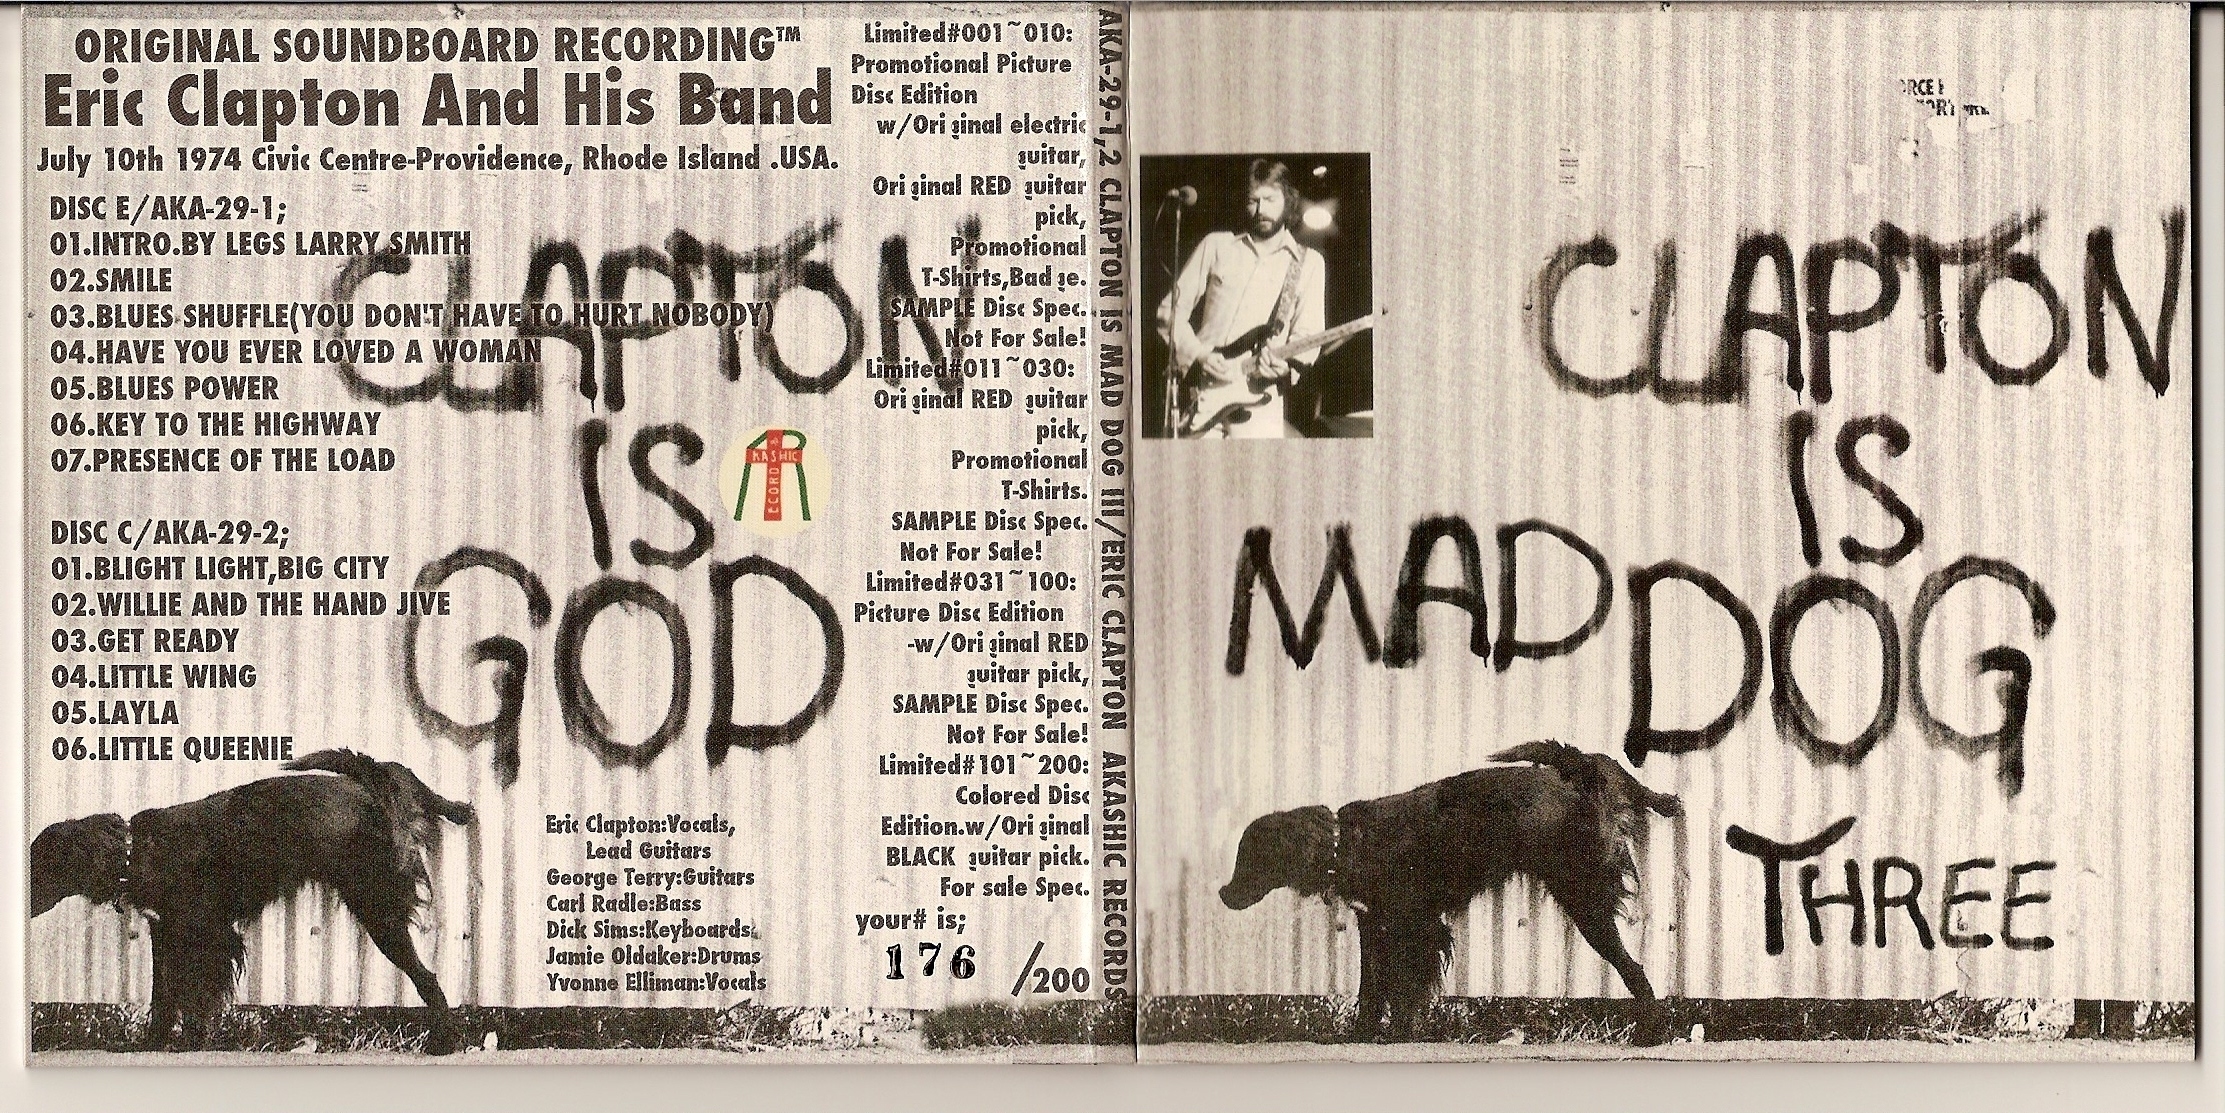 ORIGINAL SOUNDBOARD RECORDING™
Eric Clapton And His Band
July 10th 1974 Civic Centre-Providence, Rhode Island .USA.
DISC E/AKA-29-1;
01.INTRO.BY LEGS LARRY SMITH
02.SMILE
03.BLUES SHUFFLE(YOU DON'T HAVE TO HURT NOBODY)
04.HAVE YOU EVER LOVED A WOMAN
05.BLUES POWER
06.KEY TO THE HIGHWAY
07.PRESENCE OF THE LOAD
DISC C/AKA-29-2;
01.BLIGHT LIGHT,BIG CITY
02.WILLIE AND THE HAND JIVE
03.GET READY
04.LITTLE WING
05.LAYLA
06.LITTLE QUEENIE
CLAPTON
IS
GOD
KASHIC
RECORD
Eric Clapton:Vocals,
Lead Guitars
George Terry:Guitars
Carl Radle:Bass
Dick Sims:Keyboards.
Jamie Oldaker:Drums
Yvonne Elliman:Vocals
Limited#001~010:
Promotional Picture
Disc Edition
w/Original electric
guitar,
Original RED guitar
pick,
Promotional
T-Shirts,Badge.
SAMPLE Disc Spec.
Not For Sale!
Limited#011~030:
Original RED guitar
pick,
Promotional
T-Shirts.
SAMPLE Disc Spec.
Not For Sale!
Limited#031~100:
Picture Disc Edition
-w/Original RED
guitar pick,
SAMPLE Disc Spec.
Not For Sale!
Limited#101~200:
Colored Disc
Edition.w/Original
BLACK guitar pick.
For sale Spec.
your# is;
176 /200
AKA-29-1,2 CLAPTON IS MAD DOG III/ERIC CLAPTON AKASHIC RECORDS
CLAPTON
IS
MAD DOG
THREE